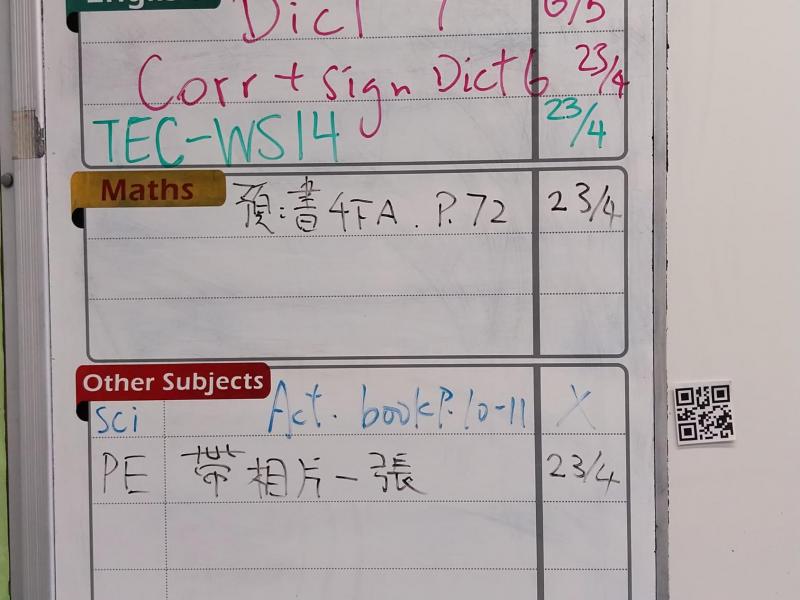 English
Dict 7 6/5
Corr + sign Dict 6 23/4
TEC-WS14 23/4
Maths
預:書4FA. P.72 23/4
Other Subjects
sci Act. book P.10-11 X
PE 帶相片一張 23/4